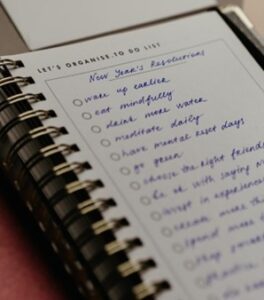 LET'S ORGANISE TO DO LIST
New Year's Resolutions
wake up earlier
eat mindfully
drink more water
meditate daily
have mental reset days
go green
choose the right friends
be ok with saying
invest in experiences
create more
spend more